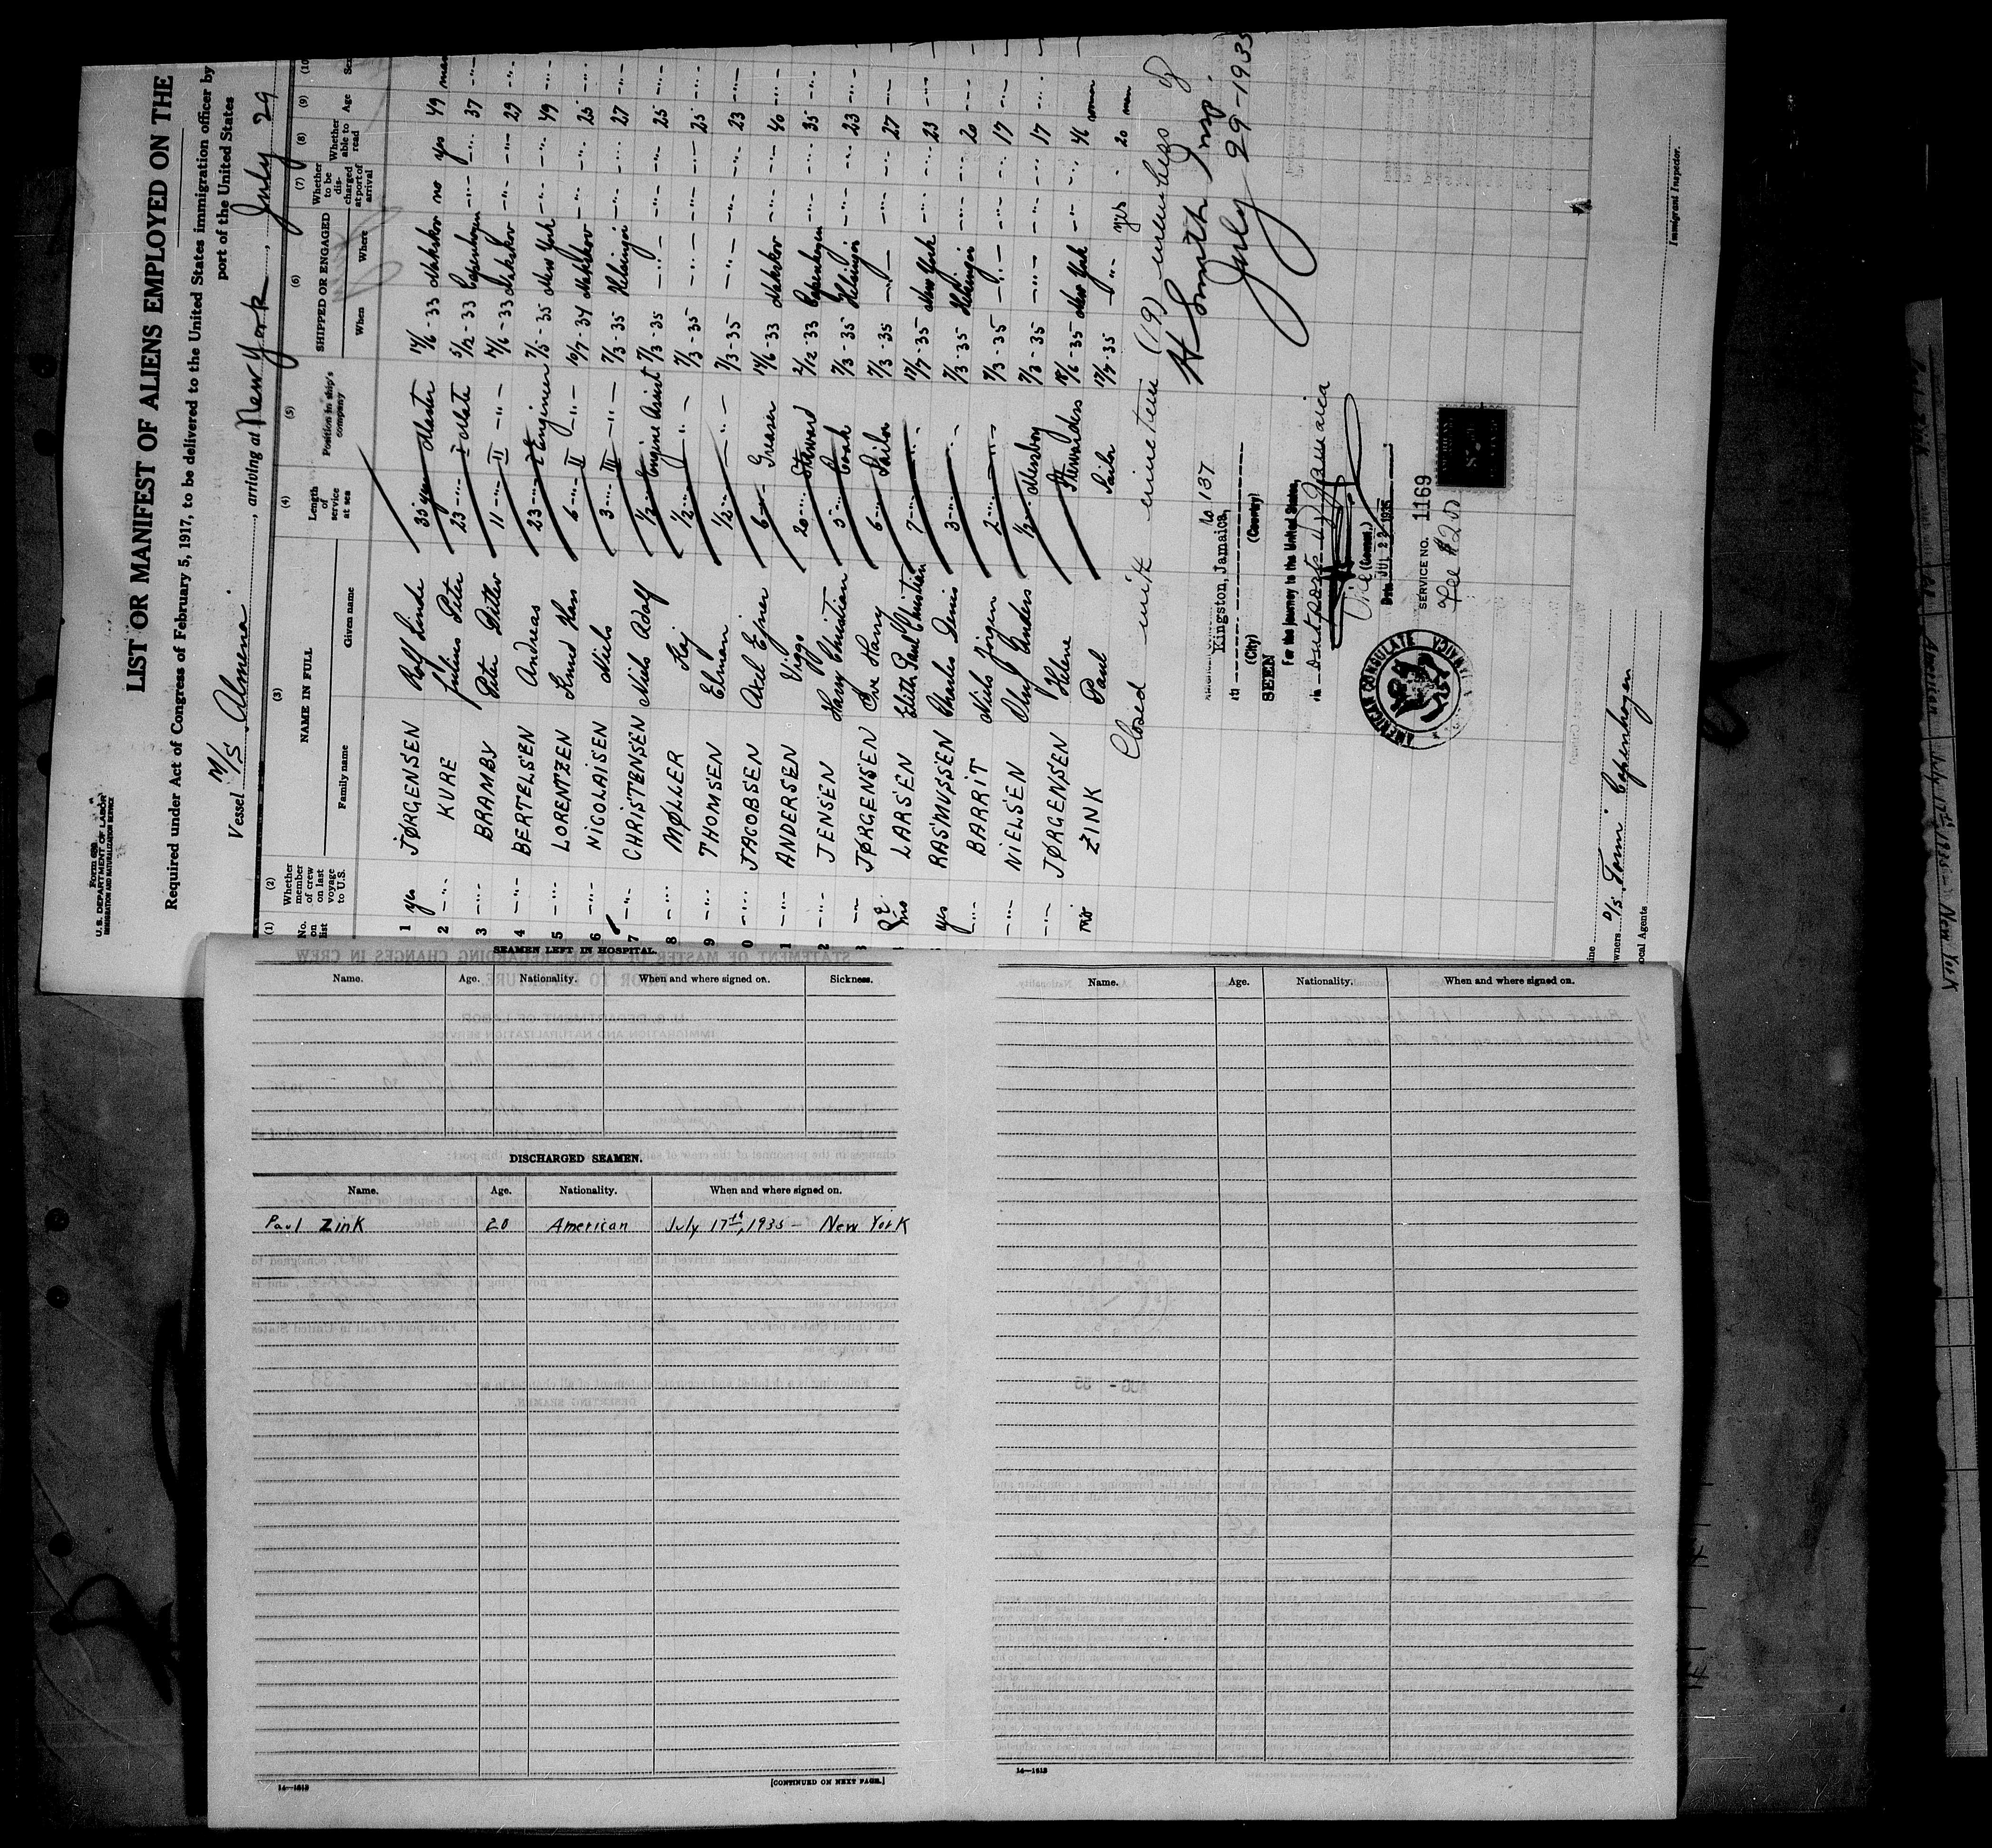 Form 680
U. S. DEPARTMENT OF LABOR
IMMIGRATION AND NATURALIZATION SERVICE
LIST OR MANIFEST OF ALIENS EMPLOYED ON THE
Required under Act of Congress of February 5, 1917, to be delivered to the United States immigration officer by
port of the United States
Vessel M/S Almena, arriving at New York, July 29
(1) (2) (3) (4) (5) (6) (7) (8) (9) (10
No. on list Whether member of crew on last voyage to U.S. NAME IN FULL Family name Given name Length of service at sea Position in ship's company SHIPPED OR ENGAGED When Where Whether to be discharged at port of arrival Whether able to read Age Sex
1 yes JØRGENSEN Rolf Linde 35 years Master 14/6-33 Nakskov no yes 49 man
2 -"- KURE Julius Peter 23 -"- I Mate 5/12-33 Copenhagen -"- -"- 37 -"-
3 -"- BRAMBY Peter Ditlev 11 -"- II -"- 14/6-33 Nakskov -"- -"- 29 -"-
4 -"- BERTELSEN Andreas 23 -"- I Engineer 7/5-35 New York -"- -"- 49 -"-
5 -"- LORENTZEN Hans 6 -"- II -"- 10/7-34 Nakskov -"- -"- 25 -"-
6 -"- NICOLAISEN Niels 3 -"- III -"- 7/3-35 Helsingør -"- -"- 27 -"-
7 -"- CHRISTENSEN Niels Adolf 1/2 -"- Engine Assist 7/3-35 -"- -"- -"- 25 -"-
8 -"- MØLLER Kej 1/2 -"- -"- 7/3-35 -"- -"- -"- 25 -"-
9 -"- THOMSEN Elman 1/2 -"- -"- 7/3-35 -"- -"- -"- 23 -"-
0 -"- JACOBSEN Axel Ejner 6 -"- Greaser 14/6-33 Nakskov -"- -"- 40 -"-
1 -"- ANDERSEN Viggo 20 -"- Steward 2/12-33 Copenhagen -"- -"- 35 -"-
2 -"- JENSEN Harry Christian 5 -"- Cook 7/3-35 Helsingør -"- -"- 23 -"-
3 -"- JØRGENSEN Ove Harry 6 -"- Sailor 7/3-35 -"- -"- -"- 27 -"-
no LARSEN Paul Christian 7 -"- -"- 17/7-35 New York -"- -"- 23 -"-
yes RASMUSSEN Charles Denis 3 -"- -"- 7/3-35 Helsingør -"- -"- 20 -"-
-"- BARRIT Niels Jørgen 2 -"- -"- 7/3-35 -"- -"- -"- 17 -"-
-"- NIELSEN Anders 1/2 -"- Messboy 7/3-35 -"- -"- -"- 17 -"-
-"- JØRGENSEN Helene Stewardess 18/6-35 New York -"- -"- 46 women
no ZINK Paul Sailor 17/7-35 -"- yes -"- 20 man
Closed with nineteen (19) members of
H Smith Insp.
July 29-1935
No 137
Kingston, Jamaica,
(City) (Country)
SEEN
For the journey to the United States,
Vice (Consul)
Date JUL 23 1935
SERVICE NO. 1169
Fee $2.00
AMERICAN CONSULATE
Owners D/S Torm Copenhagen
Local Agents
Immigrant Inspector.
SEAMEN LEFT IN HOSPITAL.
Name. Age. Nationality. When and where signed on. Sickness.
DISCHARGED SEAMEN.
Name. Age. Nationality. When and where signed on.
Paul Zink 20 American July 17th, 1935 - New York
14—1813
[CONTINUED ON NEXT PAGE.]
Name. Age. Nationality. When and where signed on.
14—1813